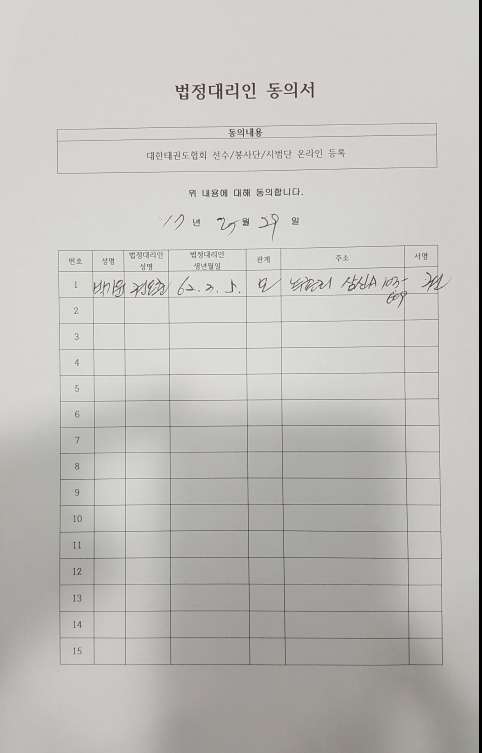 법정대리인 동의서
동의내용
대한태권도협회 선수/봉사단/시범단 온라인 등록
위 내용에 대해 동의합니다.
'17 년 월 29 일
번호 성명 법정대리인 성명 법정대리인 생년월일 관계 주소 서명
1 62. 2. 5. 모 삼신A 103-
609
2
3
4
5
6
7
8
9
10
11
12
13
14
15